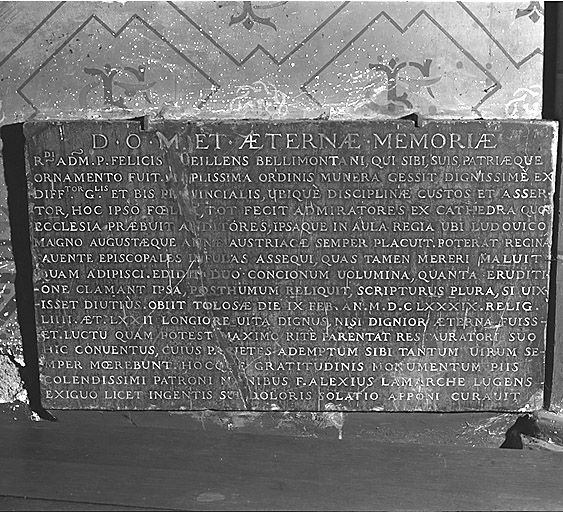 D · O · M · ET · ÆTERNÆ · MEMORIÆ
R^DI. ADM. P. FELICIS EILLENS BELLIMONTANI, QUI SIBI, SUIS, PATRIÆQUE
ORNAMENTO FUIT. PLISSIMA ORDINIS MUNERA GESSIT, DIGNISSIME EX
DIFF^TOR G^LIS ET BIS PROVINCIALIS, UBIQUE DISCIPLINÆ CUSTOS ET ASSER
TOR, HOC IPSO FŒLIX, TOT FECIT ADMIRATORES EX CATHEDRA QUOT
ECCLESIA PRÆBUIT AUDITORES, IPSAQUE IN AULA REGIA UBI LUDOUICO
MAGNO AUGUSTÆQUE ANNÆ AUSTRIACÆ SEMPER PLACUIT. POTERAT REGINA
FAUENTE EPISCOPALES INFULAS ASSEQUI, QUAS TAMEN MERERI MALUIT
QUAM ADIPISCI. EDIDIT DUO CONCIONUM UOLUMINA, QUANTA ERUDITI
ONE CLAMANT IPSA, POSTHUMUM RELIQUIT, SCRIPTURUS PLURA, SI UIX
ISSET DIUTIUS. OBIIT TOLOSÆ DIE IX FEB. AN. M. D. C LXXXIX. RELIG.
LIIII. ÆT. LXXII LONGIORE UITA DIGNUS, NISI DIGNIOR ÆTERNA FUISS-
ET. LUCTU QUAM POTEST MAXIMO RITE PARENTAT RESTAURATORI SUO
HIC CONUENTUS, CUIUS PARIETES ADEMPTUM SIBI TANTUM UIRUM SE-
MPER MŒREBUNT. HOCCE GRATITUDINIS MONUMENTUM PIIS
COLENDISSIMI PATRONI MANIBUS F. ALEXIUS LAMARCHE LUGENS
EXIGUO LICET INGENTIS SUI DOLORIS SOLATIO APPONI CURAUIT